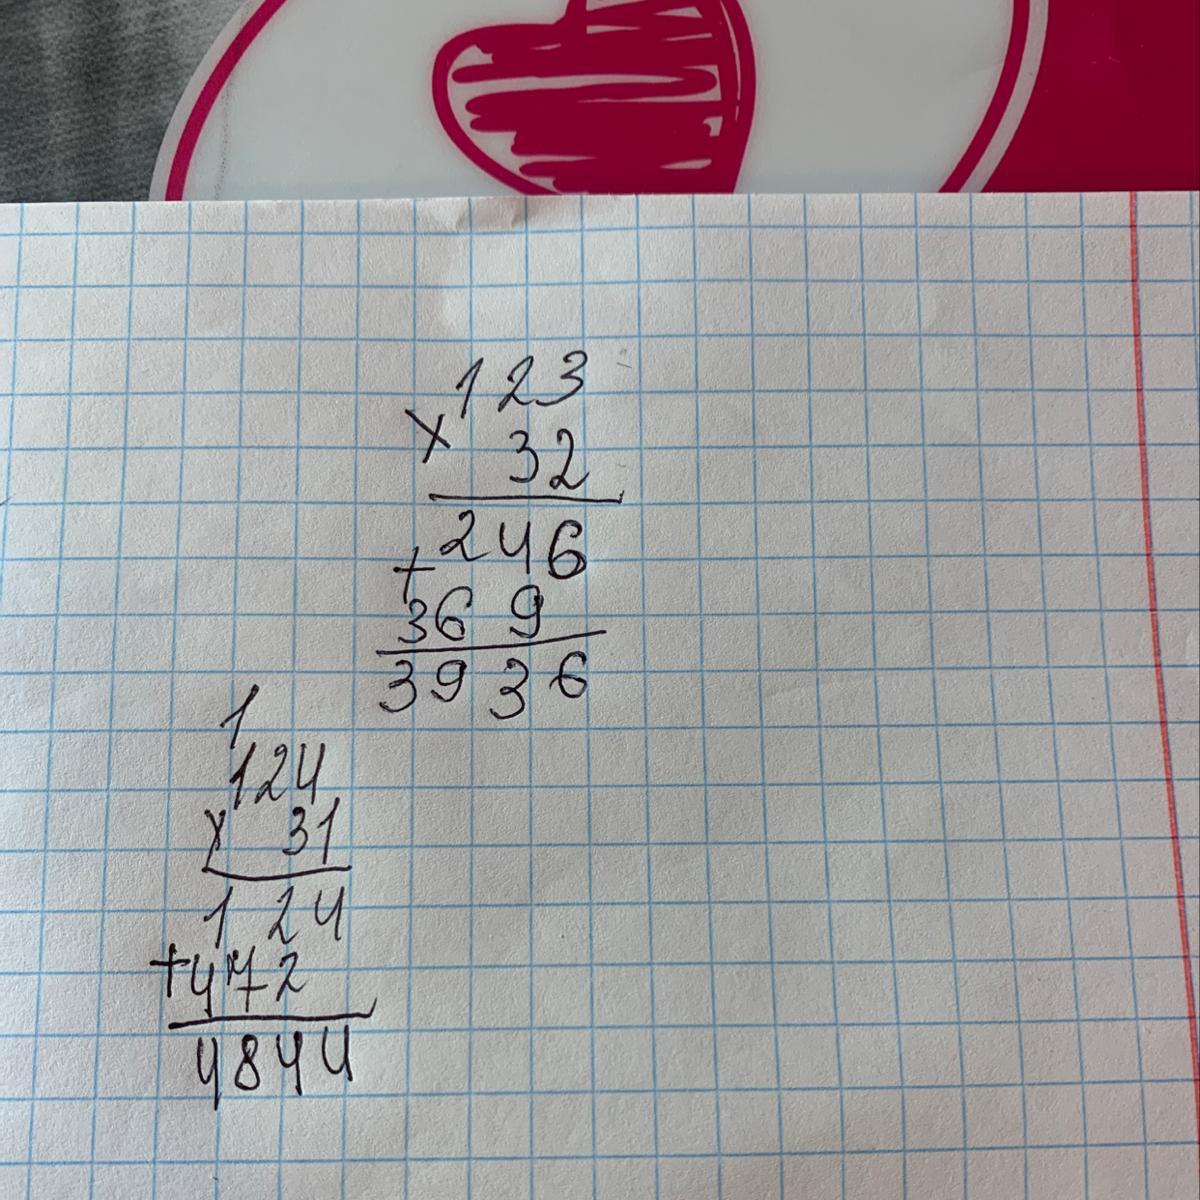 123
× 32
246
+
36 9
3936
1
124
× 31
124
+472
4844